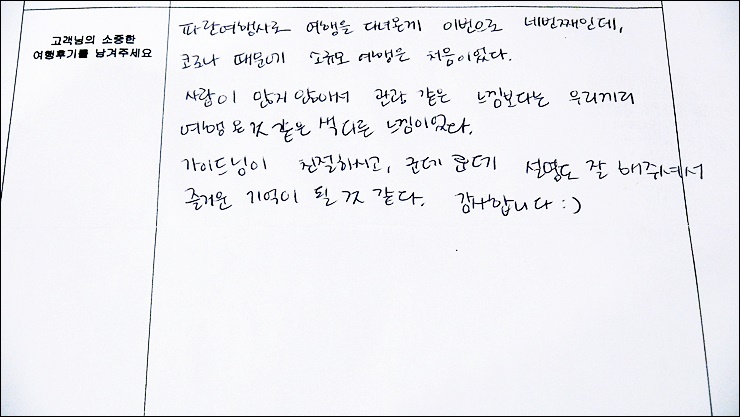 고객님의 소중한
여행후기를 남겨주세요
파란여행사로 여행을 다녀온게 이번으로 네번째인데,
코로나 때문에 소규모 여행은 처음이었다.
사람이 많지 않아서 관광 같은 느낌보다는 우리끼리
여행 온 것 같은 색다른 느낌이었다.
가이드님이 친절하시고, 군데 군데 설명도 잘 해주셔서
즐거운 기억이 될 것 같다. 감사합니다 :)